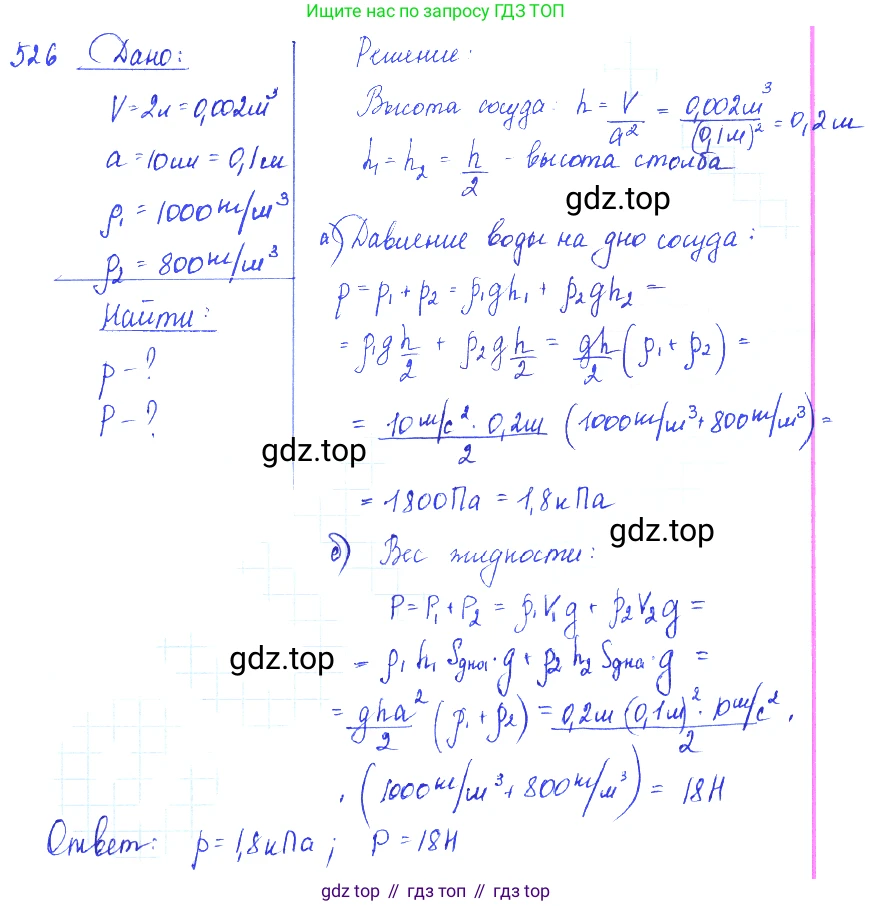 Ищите нас по запросу ГДЗ ТОП
526 Дано:
V = 2л = 0,002м³
a = 10см = 0,1м
ρ₁ = 1000 кг/м³
ρ₂ = 800 кг/м³
Найти:
p - ?
P - ?
Решение:
Высота сосуда: h = V/a² = 0,002м³/(0,1м)² = 0,2м
h₁ = h₂ = h/2 - высота столба
gdz.top
а) Давление воды на дно сосуда:
p = p₁ + p₂ = ρ₁gh₁ + ρ₂gh₂ =
= ρ₁g h/2 + ρ₂g h/2 = gh/2 (ρ₁ + ρ₂) =
= 10 м/с² · 0,2м / 2 (1000 кг/м³ + 800 кг/м³) =
gdz.top
= 1800 Па = 1,8 кПа
gdz.top
б) Вес жидкости:
P = P₁ + P₂ = ρ₁V₁g + ρ₂V₂g =
gdz.top
= ρ₁ h₁ Sдна · g + ρ₂ h₂ Sдна · g =
= gha²/2 (ρ₁ + ρ₂) = 0,2м (0,1м)² · 10 м/с² / 2 ·
· (1000 кг/м³ + 800 кг/м³) = 18Н
Ответ: p = 1,8 кПа ; P = 18Н
gdz.top // гдз топ // gdz.top